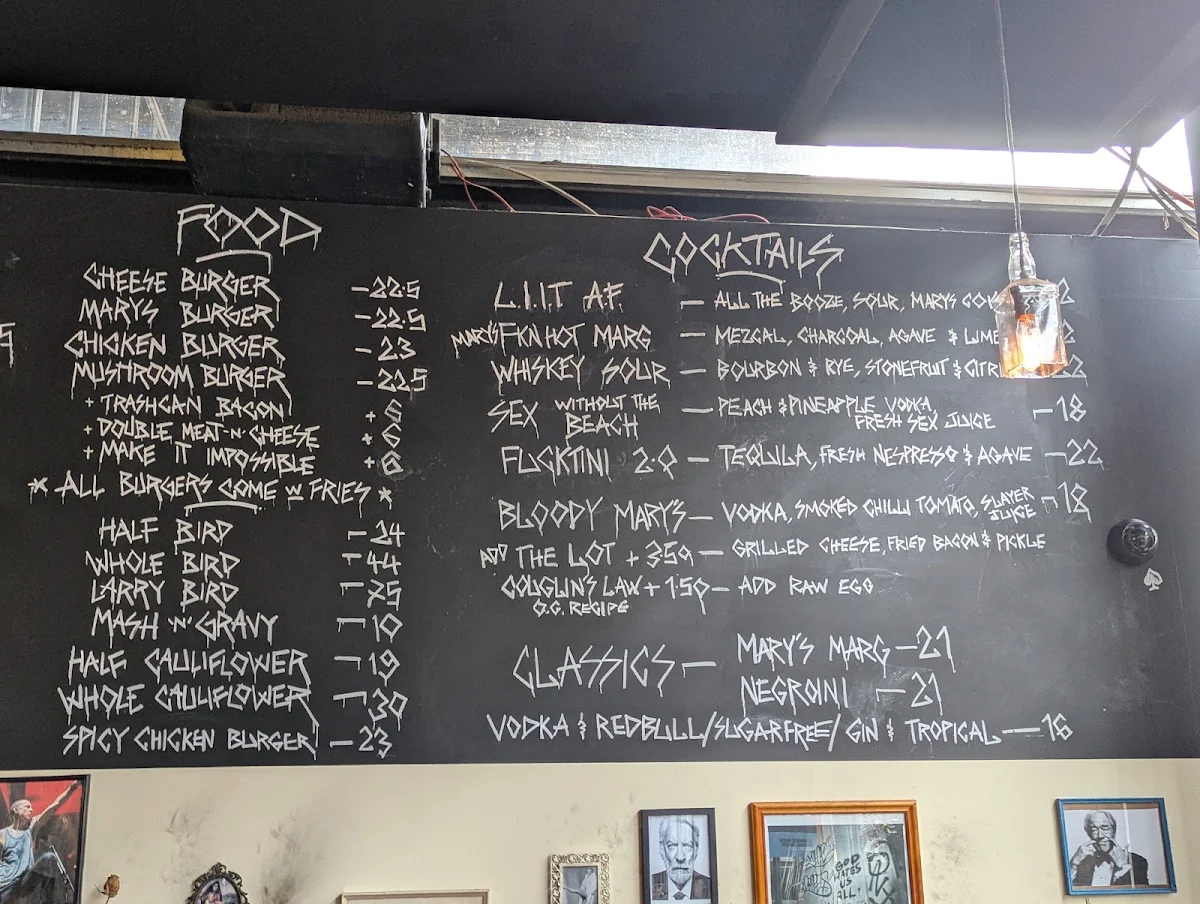 FOOD
CHEESE BURGER -22.5
MARYS BURGER -22.5
CHICKEN BURGER -23
MUSHROOM BURGER -22.5
+ TRASHCAN BACON +6
+ DOUBLE MEAT 'N' CHEESE +6
+ MAKE IT IMPOSSIBLE +6
* ALL BURGERS COME W FRIES *
HALF BIRD -24
WHOLE BIRD -44
LARRY BIRD -75
MASH 'N' GRAVY -10
HALF CAULIFLOWER -19
WHOLE CAULIFLOWER -30
SPICY CHICKEN BURGER -23
COCKTAILS
L.I.I.T A.F. - ALL THE BOOZE, SOUR, MARYS
MARY'S FKN HOT MARG - MEZCAL, CHARCOAL, AGAVE & LIME
WHISKEY SOUR - BOURBON & RYE, STONEFRUIT &
SEX WITHOUT THE BEACH - PEACH & PINEAPPLE VODKA, FRESH SEX JUICE -18
FUCKTINI 2.0 - TEQUILA, FRESH NESPRESSO & AGAVE -22
BLOODY MARY'S - VODKA, SMOKED CHILLI TOMATO, SLAYER JUICE -18
ADD THE LOT + 3.50 - GRILLED CHEESE, FRIED BACON & PICKLE
COUGLIN'S LAW + 1.50 - ADD RAW EGG
O.G. RECIPE
CLASSICS - MARY'S MARG -21
NEGRONI -21
VODKA & REDBULL/SUGARFREE/ GIN & TROPICAL -16
GOD HATES US ALL!